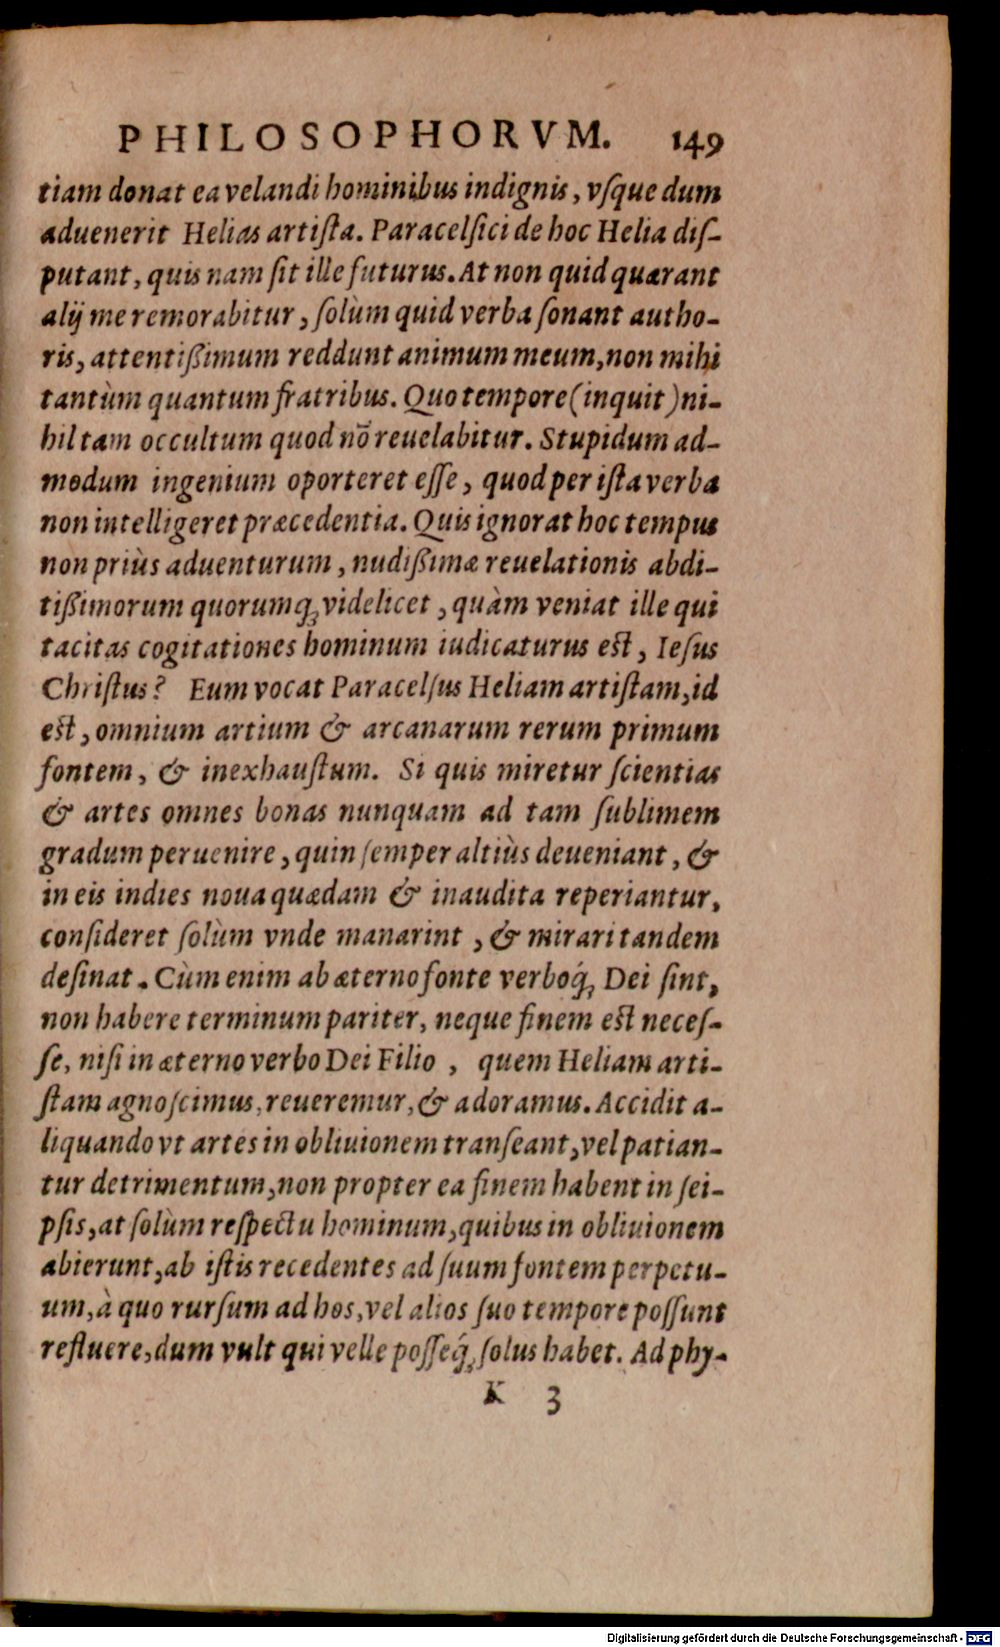 PHILOSOPHORVM. 149
tiam donat ea velandi hominibus indignis, vſque dum
aduenerit Helias artiſta. Paracelſici de hoc Helia diſ-
putant, quis nam ſit ille futurus. At non quid quærant
alij me remorabitur, ſolùm quid verba ſonant autho-
ris, attentißimum reddunt animum meum, non mihi
tantùm quantum fratribus. Quo tempore (inquit) ni-
hil tam occultum quod nõ reuelabitur. Stupidum ad-
modum ingenium oporteret eſſe, quod per iſta verba
non intelligeret præcedentia. Quis ignorat hoc tempus
non priùs aduenturum, nudißimæ reuelationis abdi-
tißimorum quorumq; videlicet, quàm veniat ille qui
tacitas cogitationes hominum iudicaturus eſt, Ieſus
Chriſtus? Eum vocat Paracelſus Heliam artiſtam, id
eſt, omnium artium & arcanarum rerum primum
fontem, & inexhauſtum. Si quis miretur ſcientias
& artes omnes bonas nunquam ad tam ſublimem
gradum peruenire, quin ſemper altiùs deueniant, &
in eis indies noua quædam & inaudita reperiantur,
conſideret ſolùm vnde manarint, & mirari tandem
deſinat. Cùm enim ab æterno fonte verboq́; Dei ſint,
non habere terminum pariter, neque finem eſt neceſ-
ſe, niſi in æterno verbo Dei Filio, quem Heliam arti-
ſtam agnoſcimus, reueremur, & adoramus. Accidit a-
liquando vt artes in obliuionem tranſeant, vel patian-
tur detrimentum, non propter ea finem habent in ſei-
pſis, at ſolùm reſpectu hominum, quibus in obliuionem
abierunt, ab iſtis recedentes ad ſuum fontem perpetu-
um, à quo rurſum ad hos, vel alios ſuo tempore poſſunt
refluere, dum vult qui velle poſſeq́; ſolus habet. Ad phy-
K 3
Digitalisierung gefördert durch die Deutsche Forschungsgemeinschaft - DFG